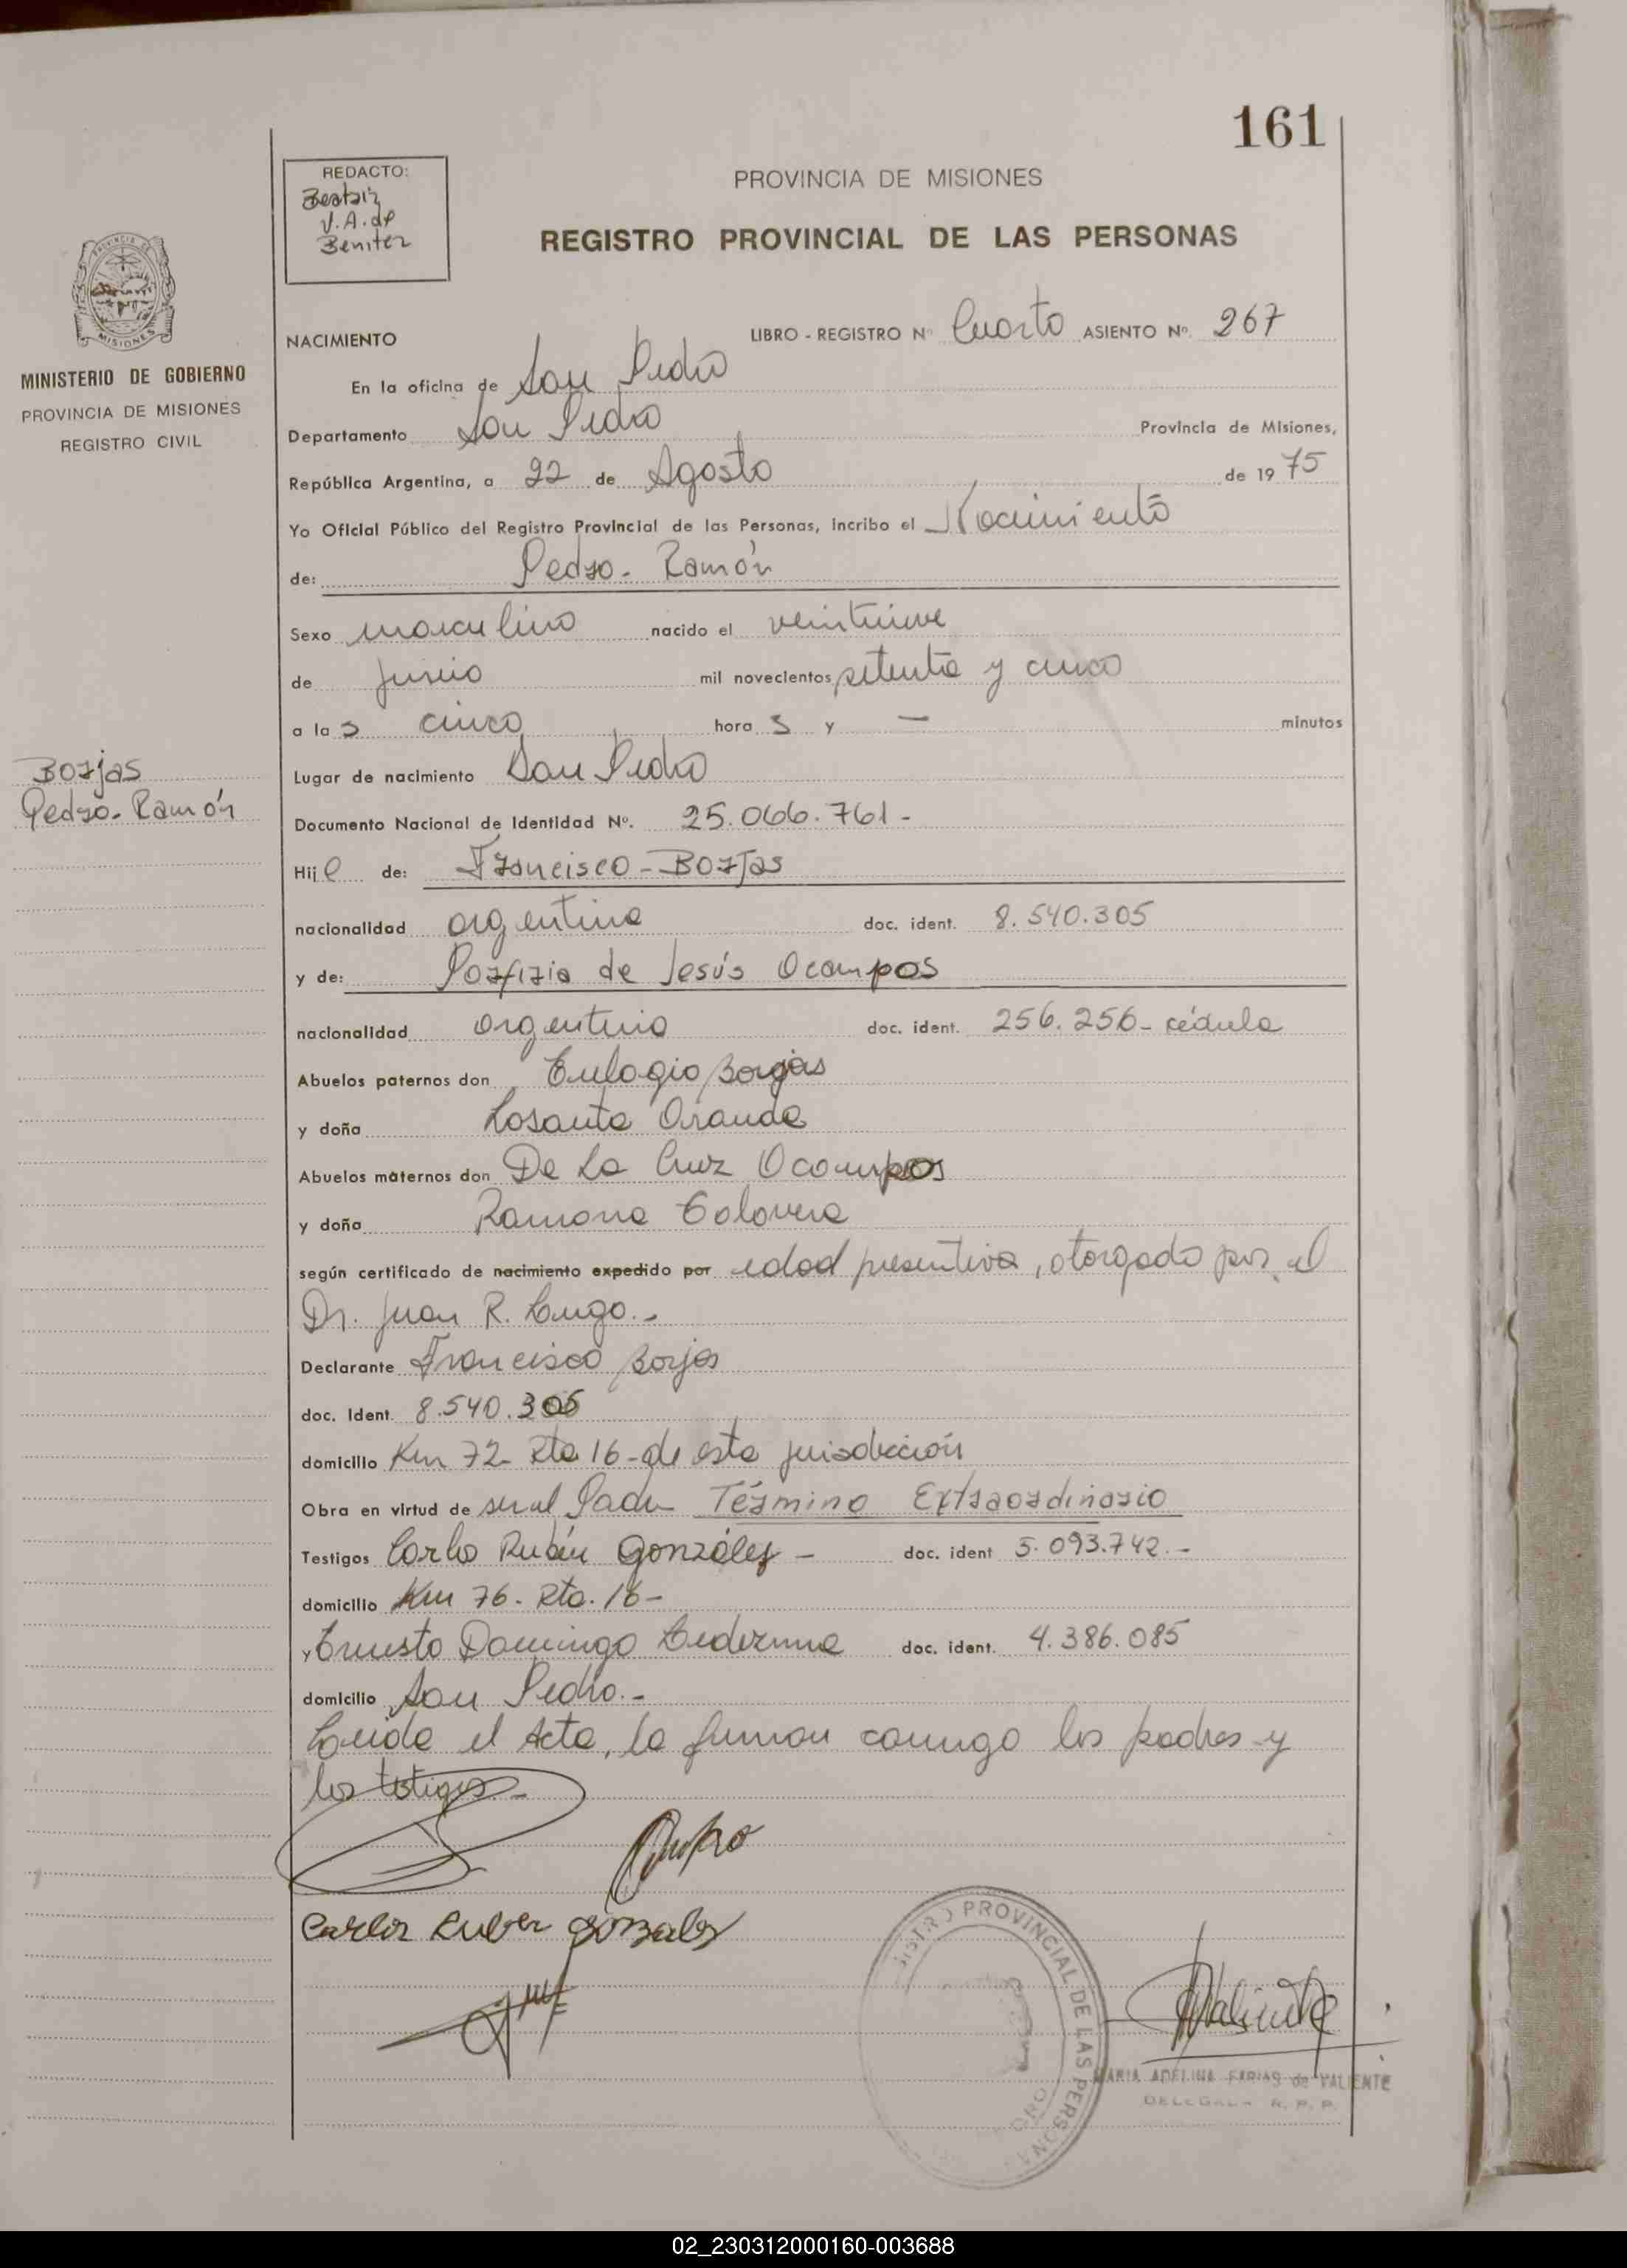 161
REDACTO:
Beatriz
V.A. de
Benitez
PROVINCIA DE MISIONES
REGISTRO PROVINCIAL DE LAS PERSONAS
MISIONES
MINISTERIO DE GOBIERNO
PROVINCIA DE MISIONES
REGISTRO CIVIL
NACIMIENTO
LIBRO - REGISTRO Nº Cuarto ASIENTO Nº. 267
En la oficina de San Pedro
Departamento San Pedro Provincia de Misiones,
República Argentina, a 22 de Agosto de 1975
Yo Oficial Público del Registro Provincial de las Personas, incribo el Nacimiento
de: Pedro - Ramón
Sexo masculino nacido el veintinueve
de Junio mil novecientos setenta y cinco
a la s cinco hora s y — minutos
Lugar de nacimiento San Pedro
Borjas
Pedro - Ramón
Documento Nacional de Identidad Nº. 25.066.761 -
Hij o de: Francisco - Borjas
nacionalidad argentina doc. ident. 8.540.305
y de: Porfiria de Jesús Ocampos
nacionalidad argentina doc. ident. 256.256 - cédula
Abuelos paternos don Eulogio Borjas
y doña Losanta Oranda
Abuelos maternos don De La Cruz Ocampos
y doña Ramona
según certificado de nacimiento expedido por edad presuntiva, otorgado por el
Dr. Juan R. Lugo.-
Declarante Francisco Borjas
doc. Ident. 8.540.305
domicilio Km 72 - Rta 16 - de esta jurisdicción
Obra en virtud de ser el Padre Término Extraordinario
Testigos Carlos Rubén González - doc. ident 5.093.742.-
domicilio Km 76 - Rta. 16 -
y Ernesto Domingo doc. ident. 4.386.085
domicilio San Pedro.-
Leida el Acta, la firman conmigo los padres y
los testigos -
Carlos Ruben Gonzales
REGISTRO PROVINCIAL DE LAS PERSONAS
MARIA ADELINA FARIAS de VALIENTE
DELEGADA R. P. P.
02_230312000160-003688